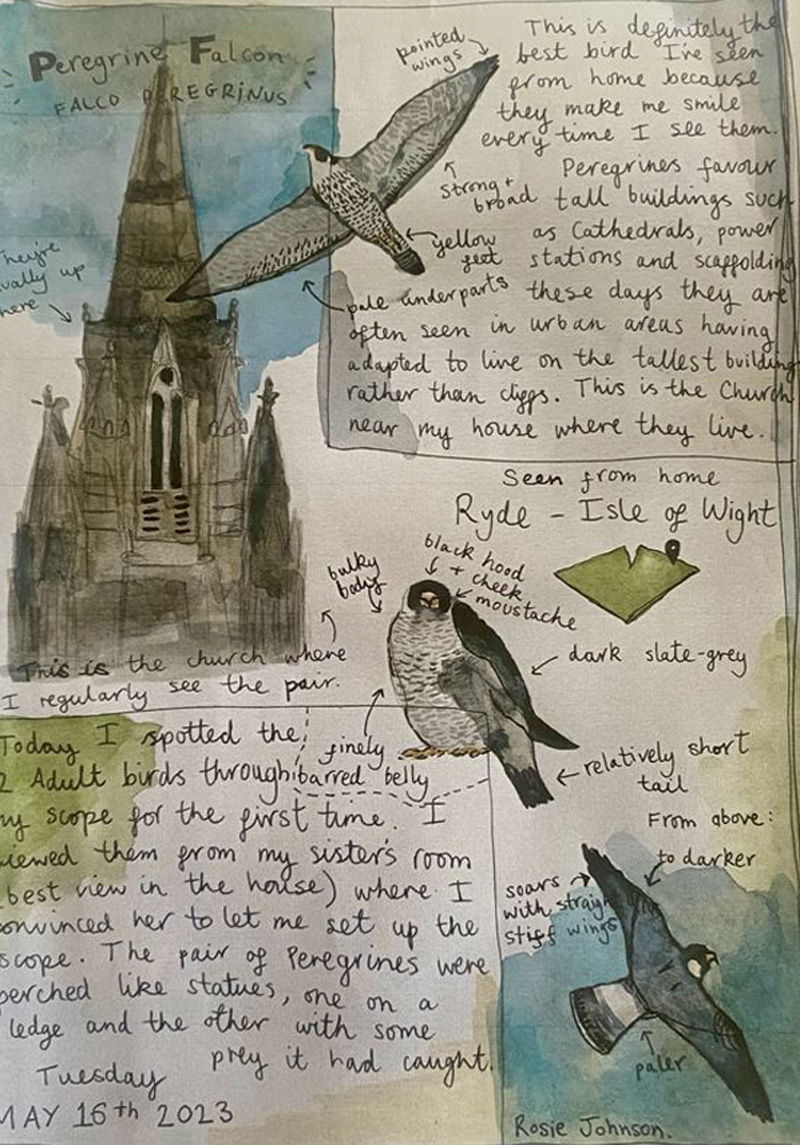 Peregrine Falcon
FALCO PEREGRINUS
pointed
wings
strong +
broad
yellow
feet
pale underparts
They're
usually up
here
This is definitely the
best bird I've seen
from home because
they make me smile
every time I see them.
Peregrines favour
tall buildings such
as Cathedrals, power
stations and scaffolding
these days they are
often seen in urban areas having
adapted to live on the tallest building
rather than cliffs. This is the Church
near my house where they live.
Seen from home
Ryde - Isle of Wight
bulky
body
black hood
+ cheek
moustache
dark slate-grey
finely
barred belly
relatively short
tail
This is the church where
I regularly see the pair.
Today I spotted the
2 Adult birds through
my scope for the first time. I
viewed them from my sister's room
(best view in the house) where I
convinced her to let me set up the
scope. The pair of Peregrines were
perched like statues, one on a
ledge and the other with some
prey it had caught.
Tuesday
MAY 16th 2023
From above:
to darker
soars
with straight
stiff wings
paler
Rosie Johnson.